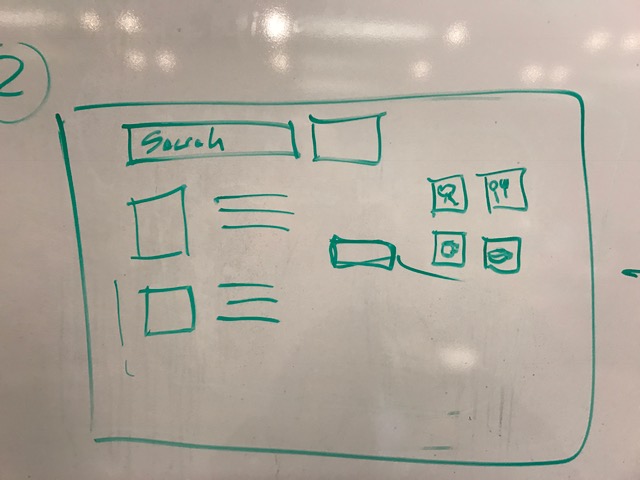 2
Search